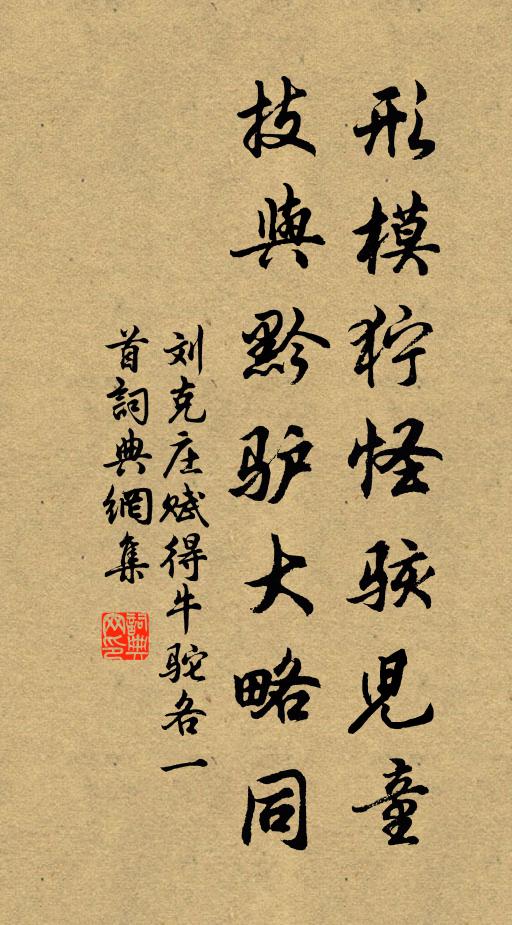 形模狞怪骇児童
技與黔驴大略同
刘克庄赋得牛驼各一
首詞典網集
詞典网印